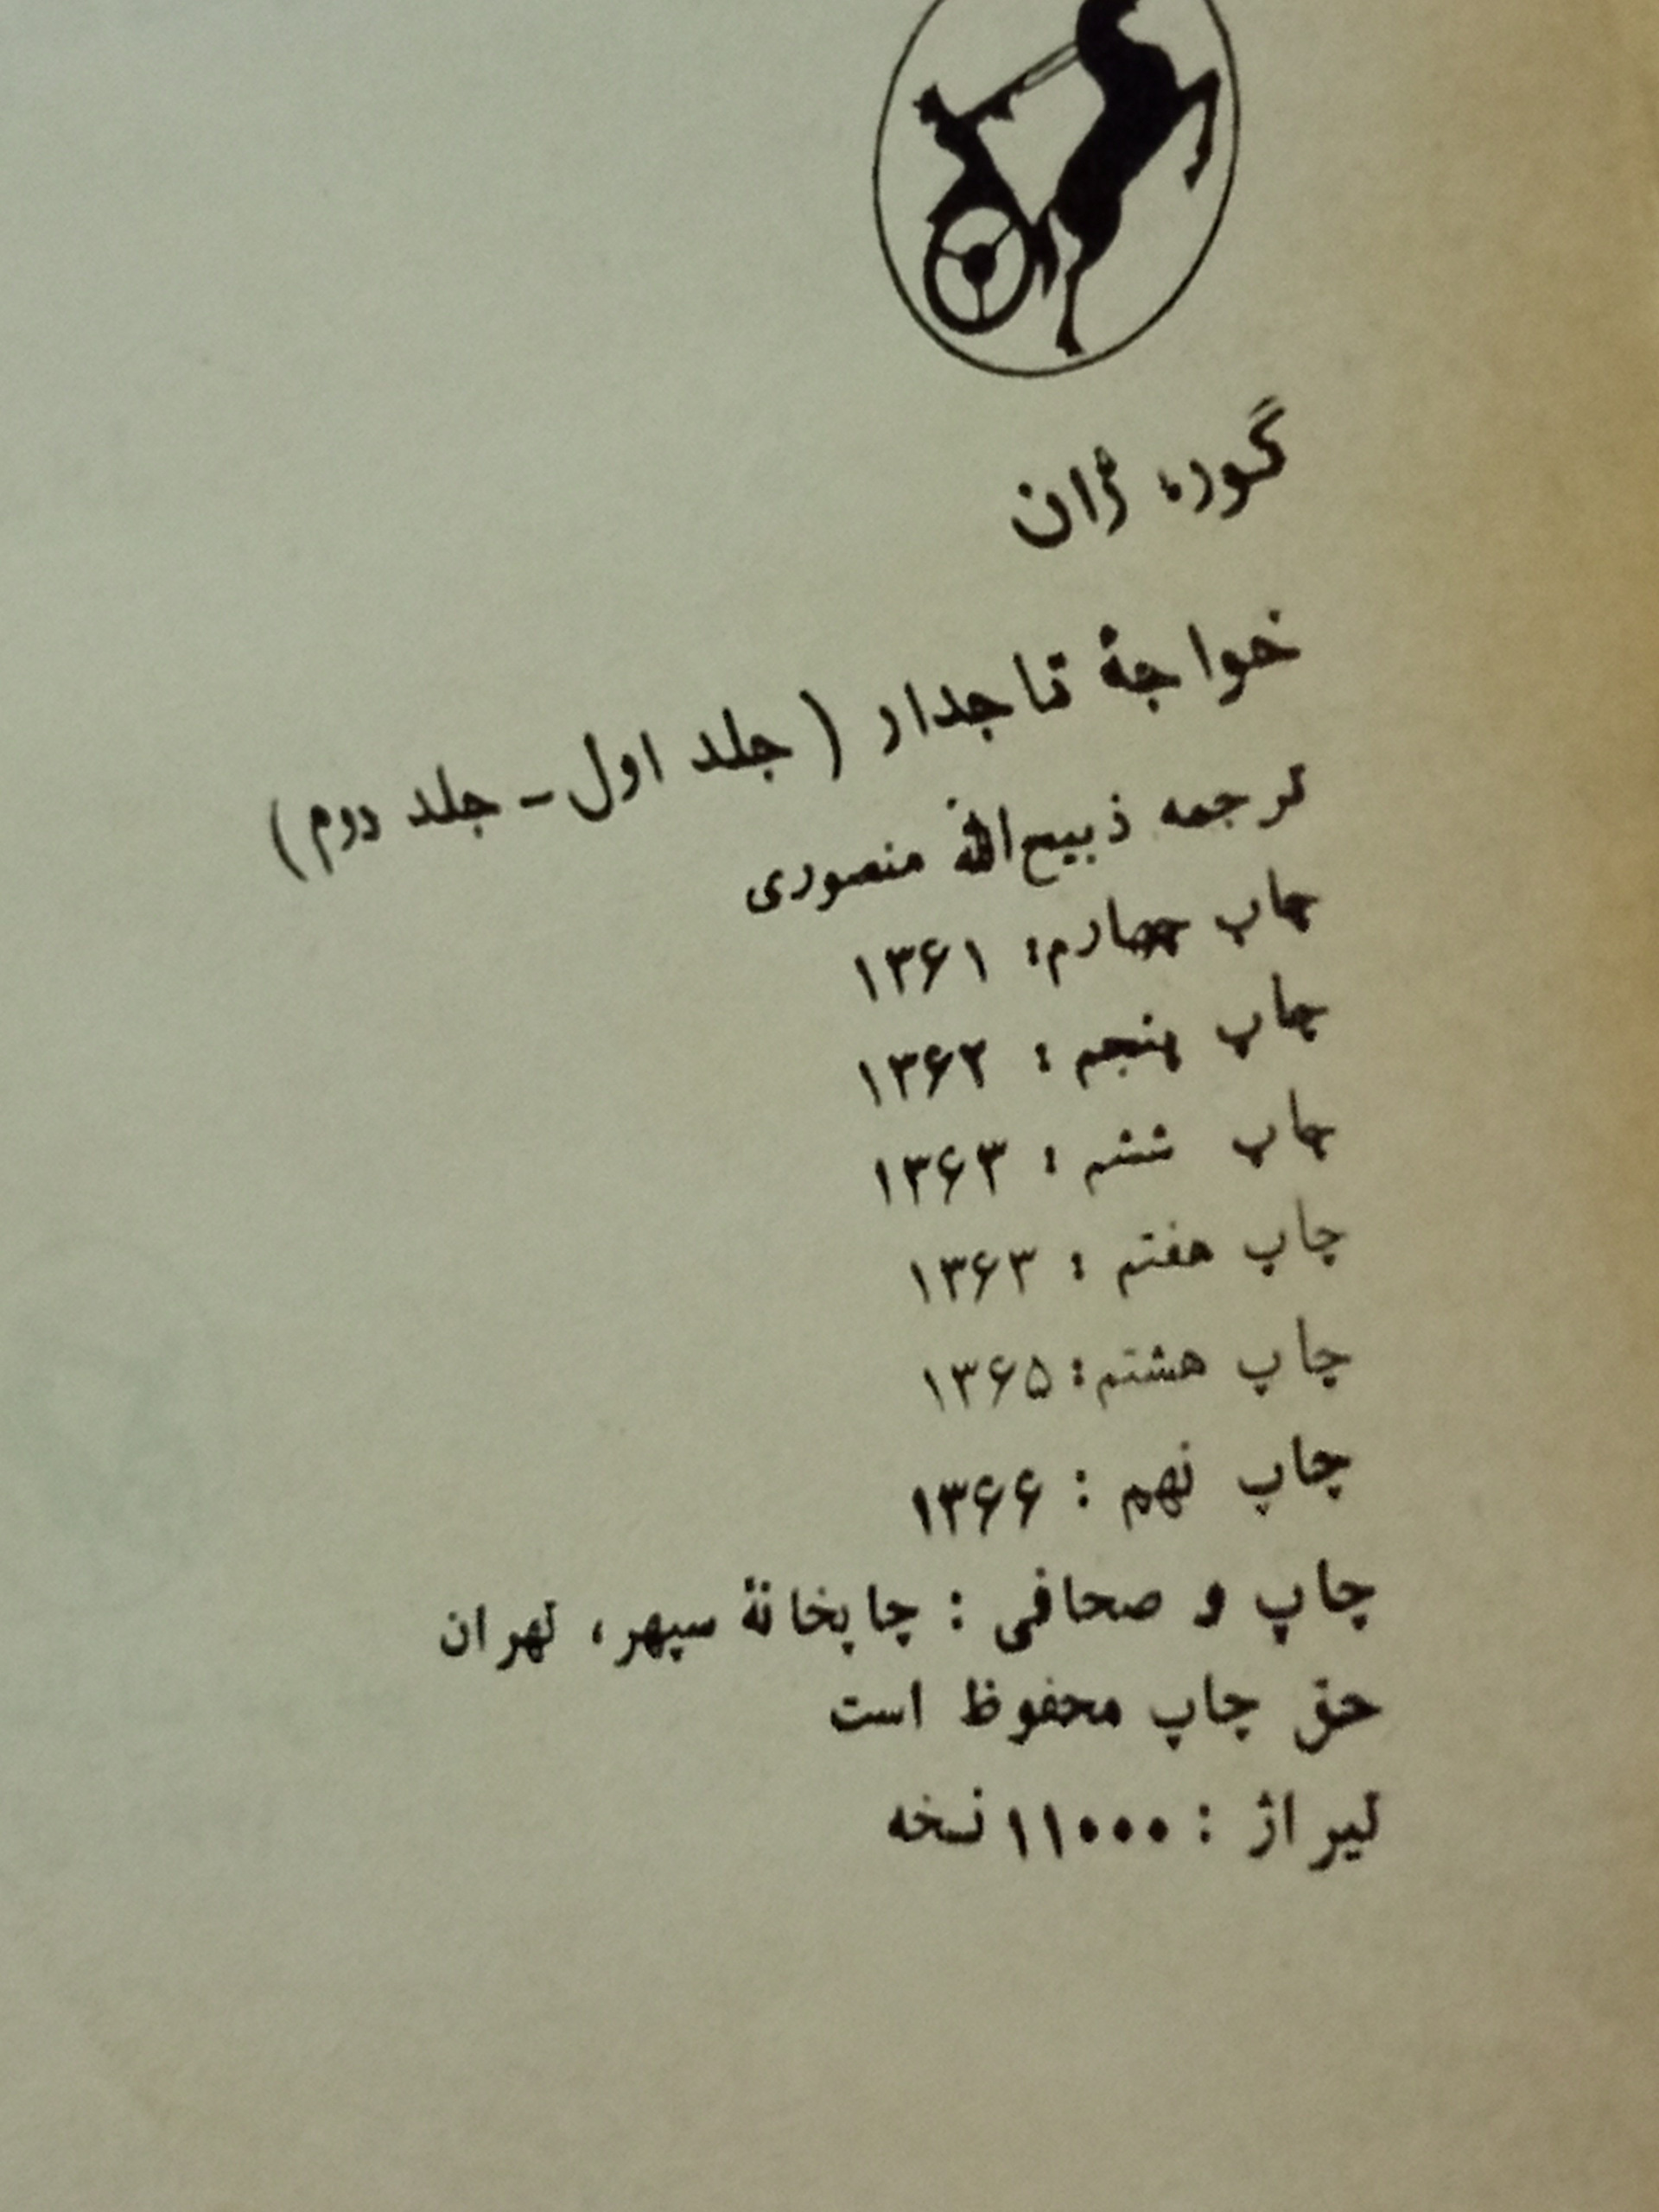 گوره ژان
خواجهٔ تاجدار (جلد اول - جلد دوم)
ترجمه ذبیح‌الله منصوری
چاپ چهارم: ۱۳۶۱
چاپ پنجم: ۱۳۶۲
چاپ ششم: ۱۳۶۳
چاپ هفتم: ۱۳۶۳
چاپ هشتم: ۱۳۶۵
چاپ نهم: ۱۳۶۶
چاپ و صحافی: چاپخانهٔ سپهر، تهران
حق چاپ محفوظ است
تیراژ: ۱۱۰۰۰ نسخه